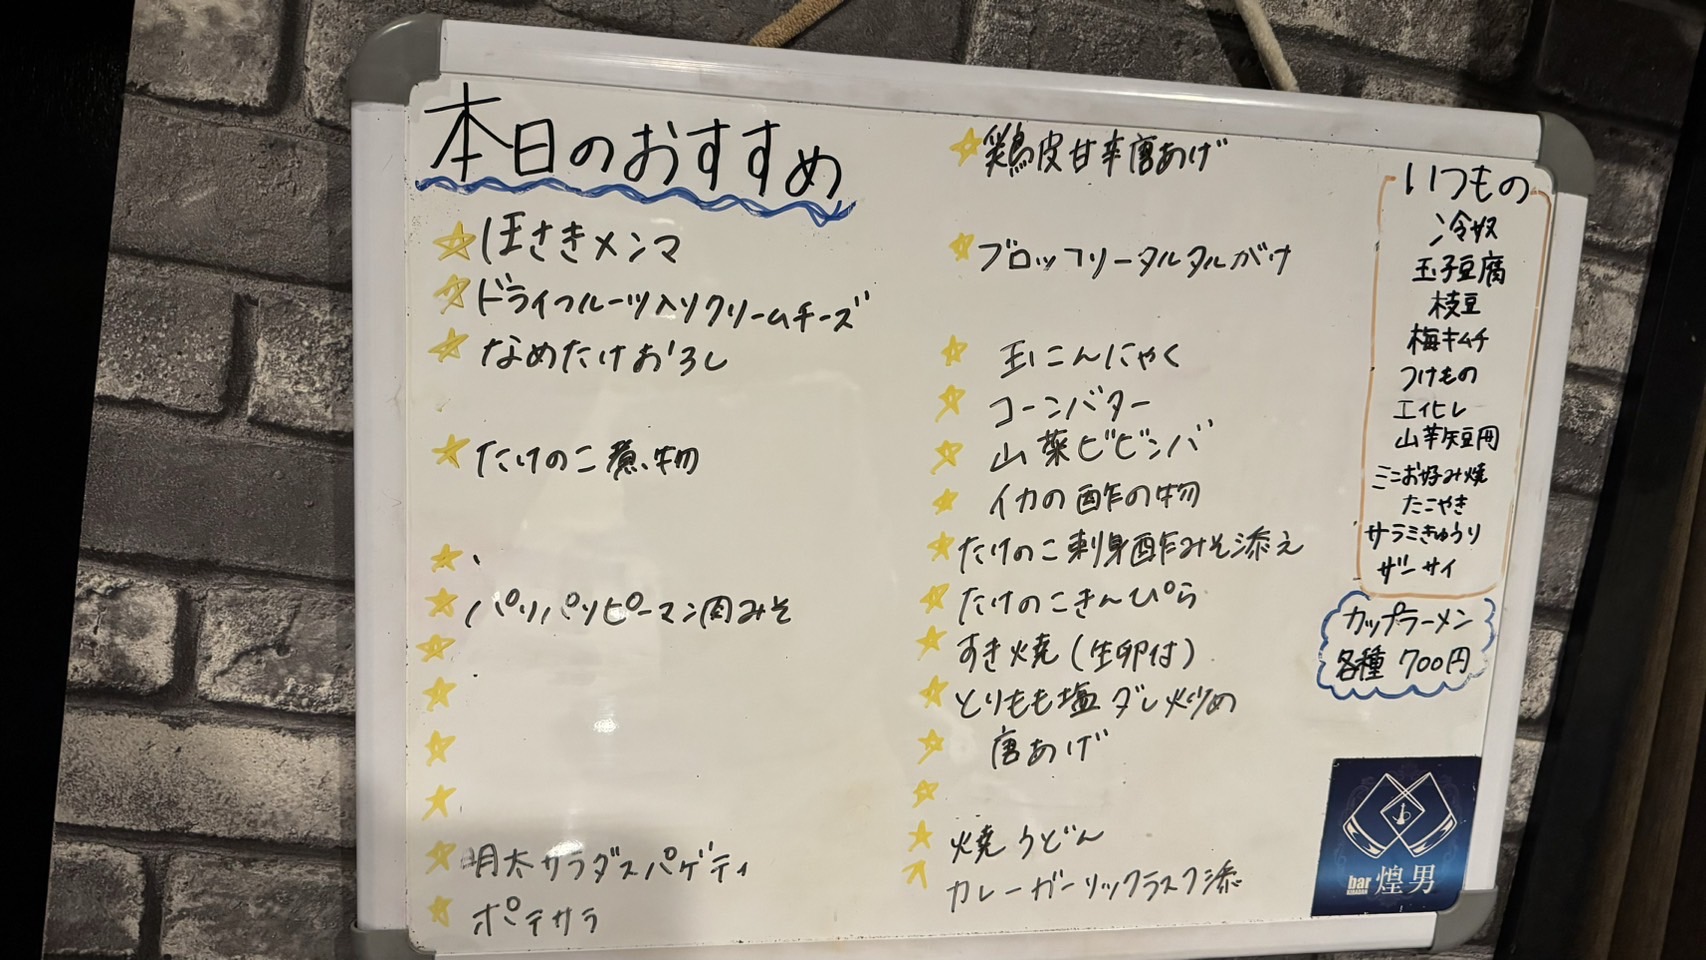 本日のおすすめ
ほさきメンマ
ドライフルーツ入りクリームチーズ
なめたけおろし
たけのこ煮物
パリパリピーマン肉みそ
明太サラダスパゲティ
ポテサラ
鶏皮甘辛唐あげ
ブロッフリータルタルがけ
玉こんにゃく
コーンバター
山菜ビビンバ
イカの酢の物
たけのこ刺身酢みそ添え
たけのこきんぴら
すき焼(生卵付)
とりもも塩ダレ炒め
唐あげ
焼うどん
カレーガーリックラスク添
いつもの
冷奴
玉子豆腐
枝豆
梅キムチ
つけもの
エイヒレ
山芋短冊
ミニお好み焼
たこやき
サラミきゅうり
ザーサイ
カップラーメン
各種 700円
bar 煌男